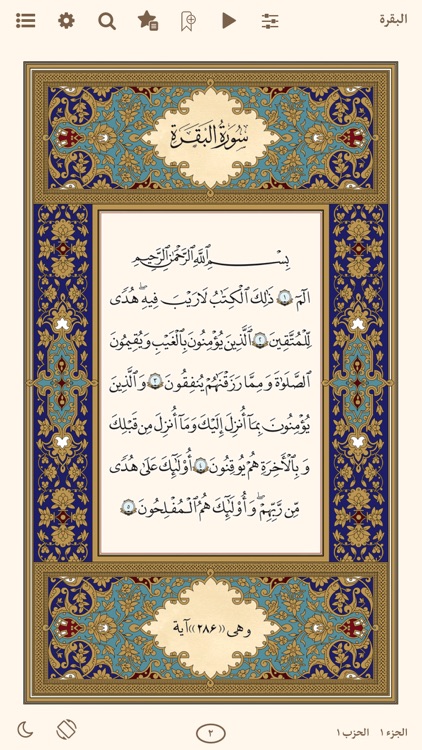 البقرة
سُورَةُ الْبَقَرَةِ
بِسْمِ اللَّهِ الرَّحْمَٰنِ الرَّحِيمِ
الٓمٓ ﴿١﴾ ذَٰلِكَ الْكِتَٰبُ لَا رَيْبَ ۛ فِيهِ ۛ هُدًى
لِّلْمُتَّقِينَ ﴿٢﴾ الَّذِينَ يُؤْمِنُونَ بِالْغَيْبِ وَيُقِيمُونَ
الصَّلَوٰةَ وَمِمَّا رَزَقْنَٰهُمْ يُنفِقُونَ ﴿٣﴾ وَالَّذِينَ
يُؤْمِنُونَ بِمَآ أُنزِلَ إِلَيْكَ وَمَآ أُنزِلَ مِن قَبْلِكَ
وَبِالْأَخِرَةِ هُمْ يُوقِنُونَ ﴿٤﴾ أُوْلَٰٓئِكَ عَلَىٰ هُدًى
مِّن رَّبِّهِمْ ۖ وَأُوْلَٰٓئِكَ هُمُ الْمُفْلِحُونَ ﴿٥﴾
وهى ((٢٨٦)) آية
الجزء ١ الحزب ١
٢